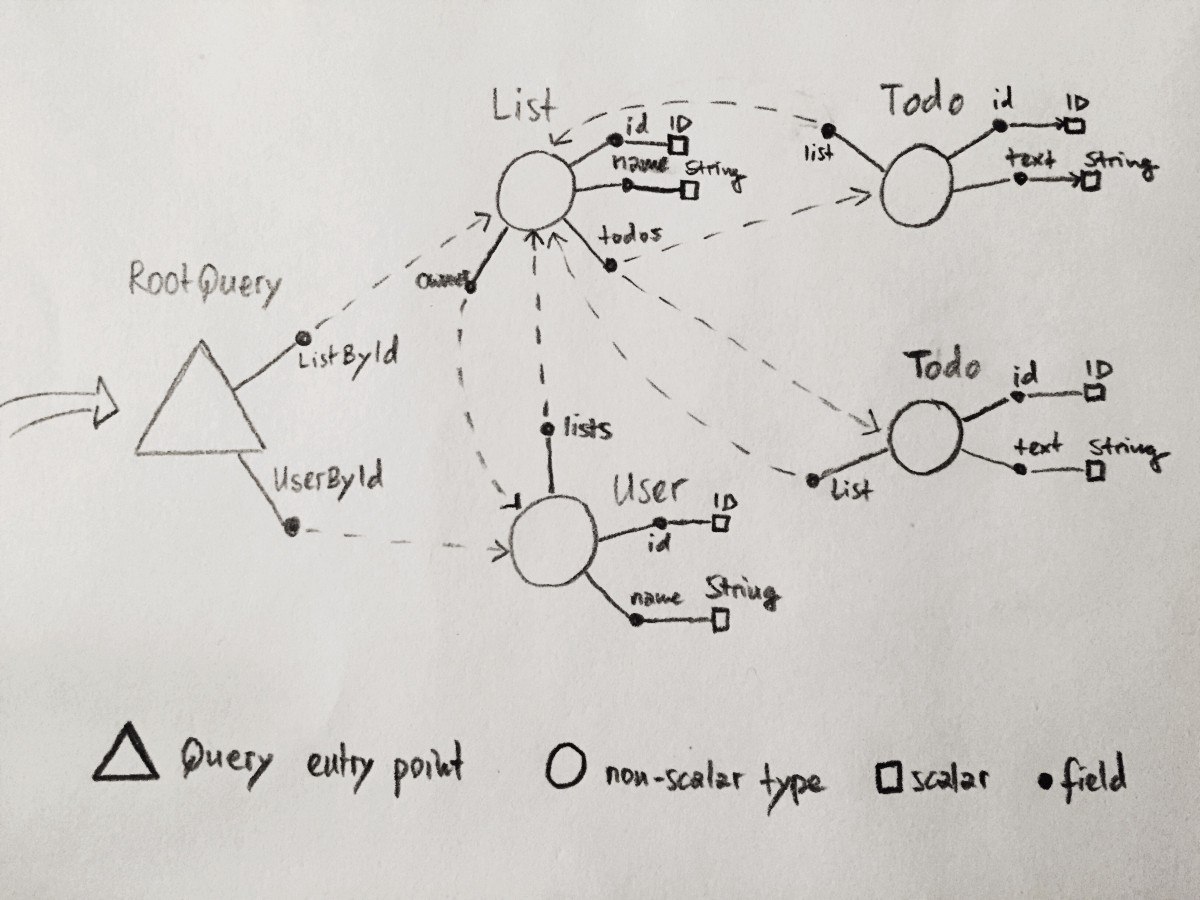 List
id
ID
name
String
todos
owner
list
Todo
id
ID
text
String
RootQuery
ListById
UserById
lists
User
id
ID
name
String
Todo
id
ID
text
String
List
Query entry point
non-scalar type
scalar
field